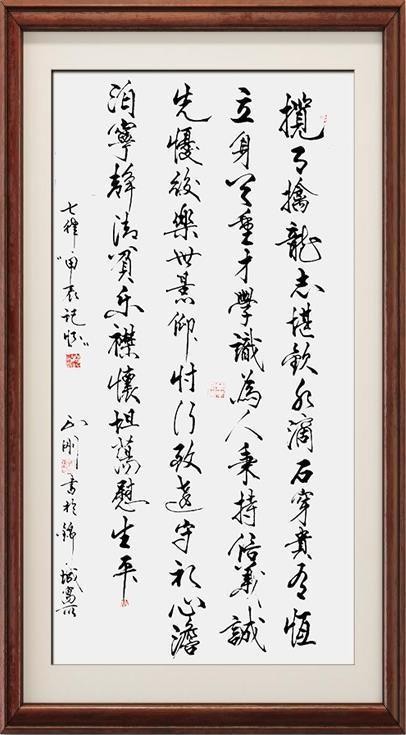 攬月擒龍志堪欽水滴石穿貴有恆
立身重才學識為人秉持信義誠
先憂後樂世景仰忖行致遠守初心澹
泊寧靜清貧樂襟懷坦蕩慰生平
七律"甲辰記懷"
書於錦城寓所